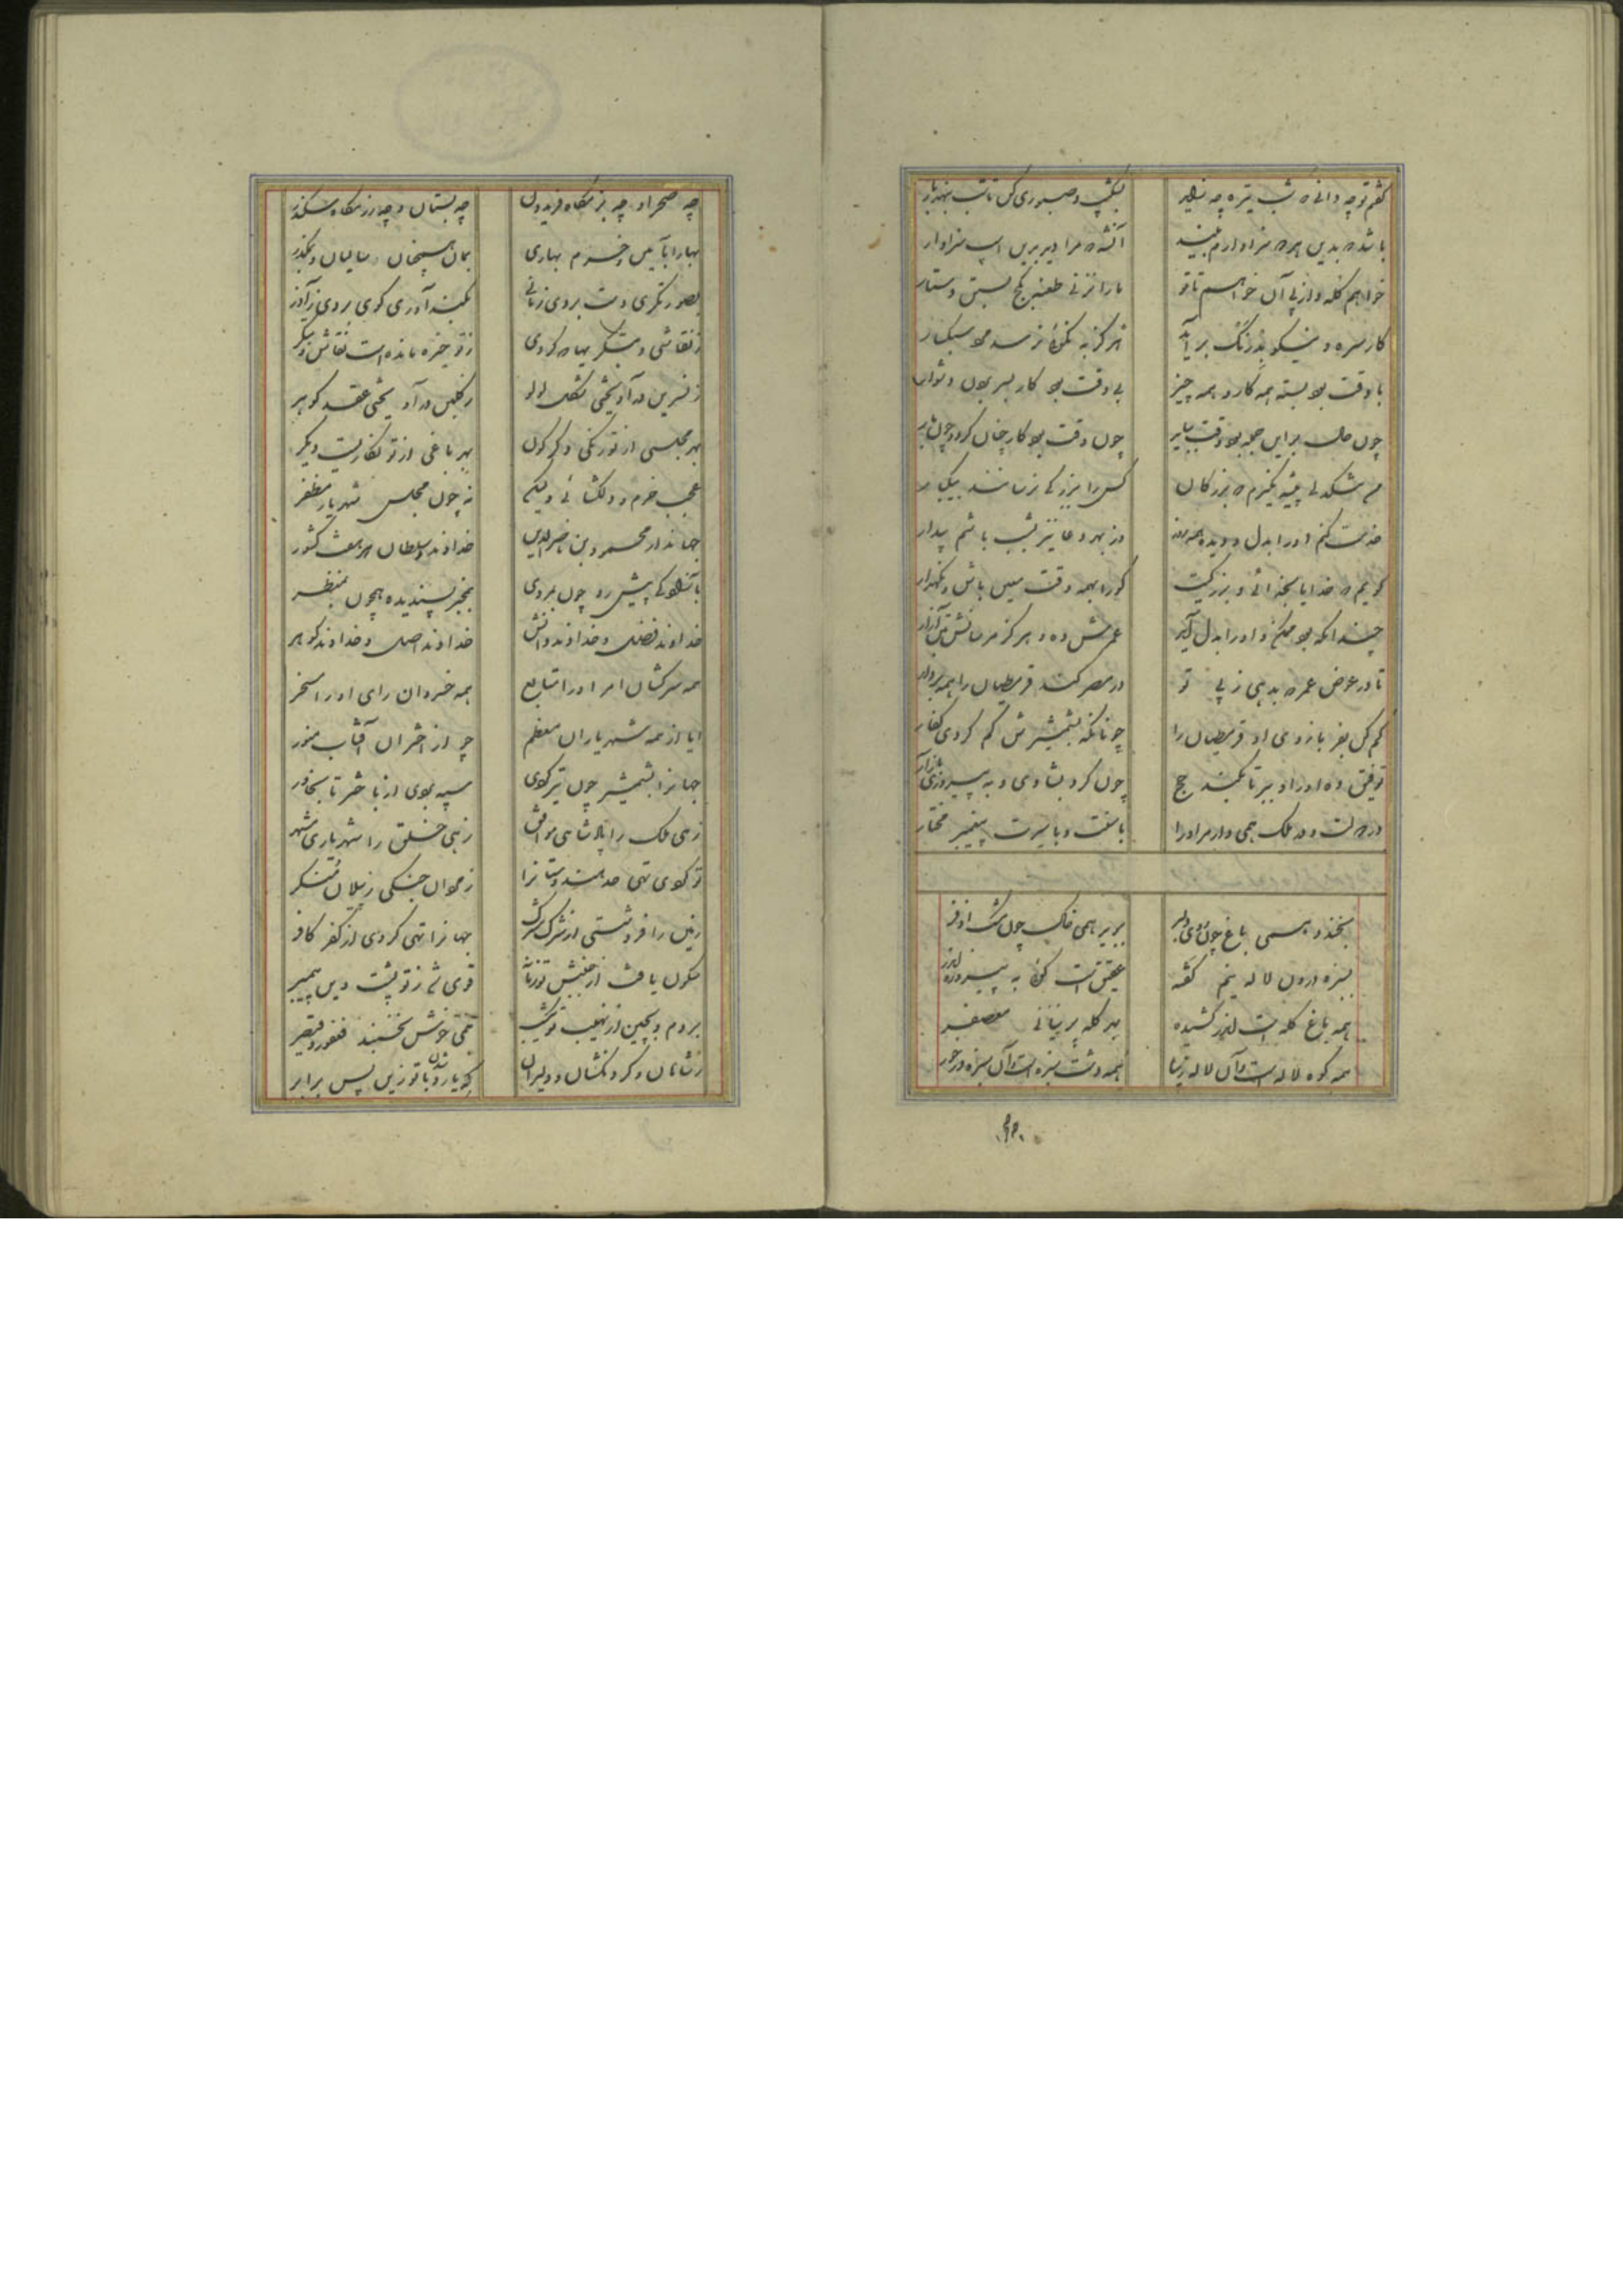 گفتم تو چه دانی که شب تیره چه زاید
بشکیب و صبوری کن تا شب بنهد بار
باشد که بدین هر که سزاوارم بیند
آنشه که مرا دیر برین اسب سزاوار
خواهم کله و از پی آن خواهم تا تو
ما را نزنی طعنه بکج بستن دستار
کار سره و نیکو بدرنگ برآید
هرگز به نکوئی نرسد مرد سبکبار
با وقت بود بسته همه کار و همه چیز
بی وقت بود کار بسر بردن دشوار
چون
چون وقت بود کار چنان گردد چون
بزرگان
کس را بزرگی نرسانند بیکبار
خدمت کنم او را بدل و دیده همه روز
وز بهر دعا نیز بشب باشم بیدار
گویم که خدایا بخدائی و بزرگیت
کو را بهمه وقت معین باش و نگهدار
چندانکه بود ممکن و او را بدل آید
عمرش ده و هرگز مرسانش آزار
تا در عوض عمر که بدهی ز پی تو
در مصر کند قرمطیان را همه بر دار
کم کن بقوی بازوی او قرمطیان را
چونانکه بشمشیرش کم کردی کفار
توفیق ده او را و ببر تا بکند حج
چون کرد بشادی و به پیروزی باز آر
در دولت و در ملک همی دار مر او را
با سنت و با سیرت پیغمبر مختار
بخندد همی باغ چون روی دلبر
ببوید همی خاک چون مشک اذفر
بسبزه درون لاله نو شکفته
عقیق است گوئی به پیروزه اندر
همه باغ کله است اندر کشیده
بهر کله پرنیانی معصفر
همه کوه لاله است و آن لاله زیبا
همه دشت سبزه است و آن سبزه در خور
چه صحرا و چه بزمگاه فریدون
چه بستان و چه رزمگاه سکندر
بهارا بآیین و خرم بهاری
بمان همچنان سالیان و بمگذر
بصورتگری دست بردی ز مانی
بکندآوری گوی بردی ز آذر
ز نقاشی و بتگریها که کردی
ز تو خیره مانده است نقاش و بتگر
ز نسرین در آویختی عقد لولو
ز گلبن در آویختی عقد گوهر
بهر مجلسی از تو رنگی دگرگون
بهر باغی از تو نگاریست دیگر
عجب خرم و دلگشائی ولیکن
نه چون مجلس شهریار مظفر
جهاندار محمود بن ناصر الدین
خداوند و سلطان هر هفت کشور
بمنظر
بمخبر پسندیده همچون بمنظر
خداوند فضل و خداوند دانش
خداوند اصل و خداوند گوهر
همه سرکشان امر او را متابع
همه خسروان رای او را مسخر
ایا از همه شهریاران معظم
چو از اختران آفتاب منور
جهان را بشمشیر چون تیر کردی
سپه بردی از باختر تا بخاور
زهی ملک را پادشاهی موافق
زهی خلق را شهریاری مشهر
تو کردی تهی حد هندوستان را
ز مردان جنگی ز پیلان منکر
زمین را فرو شستی از شرک مشرک
جهان را تهی کردی از کفر کافر
سکون یافت از جنبش تو زمانه
قوی شد ز تو پشت دین پیمبر
بروم و بچین از نهیب تو یکشب
همی خوش نخسبند فغفور و قیصر
ز شاهان و گردنکشان و دلیران
که یارد زدن با تو زین پس برابر